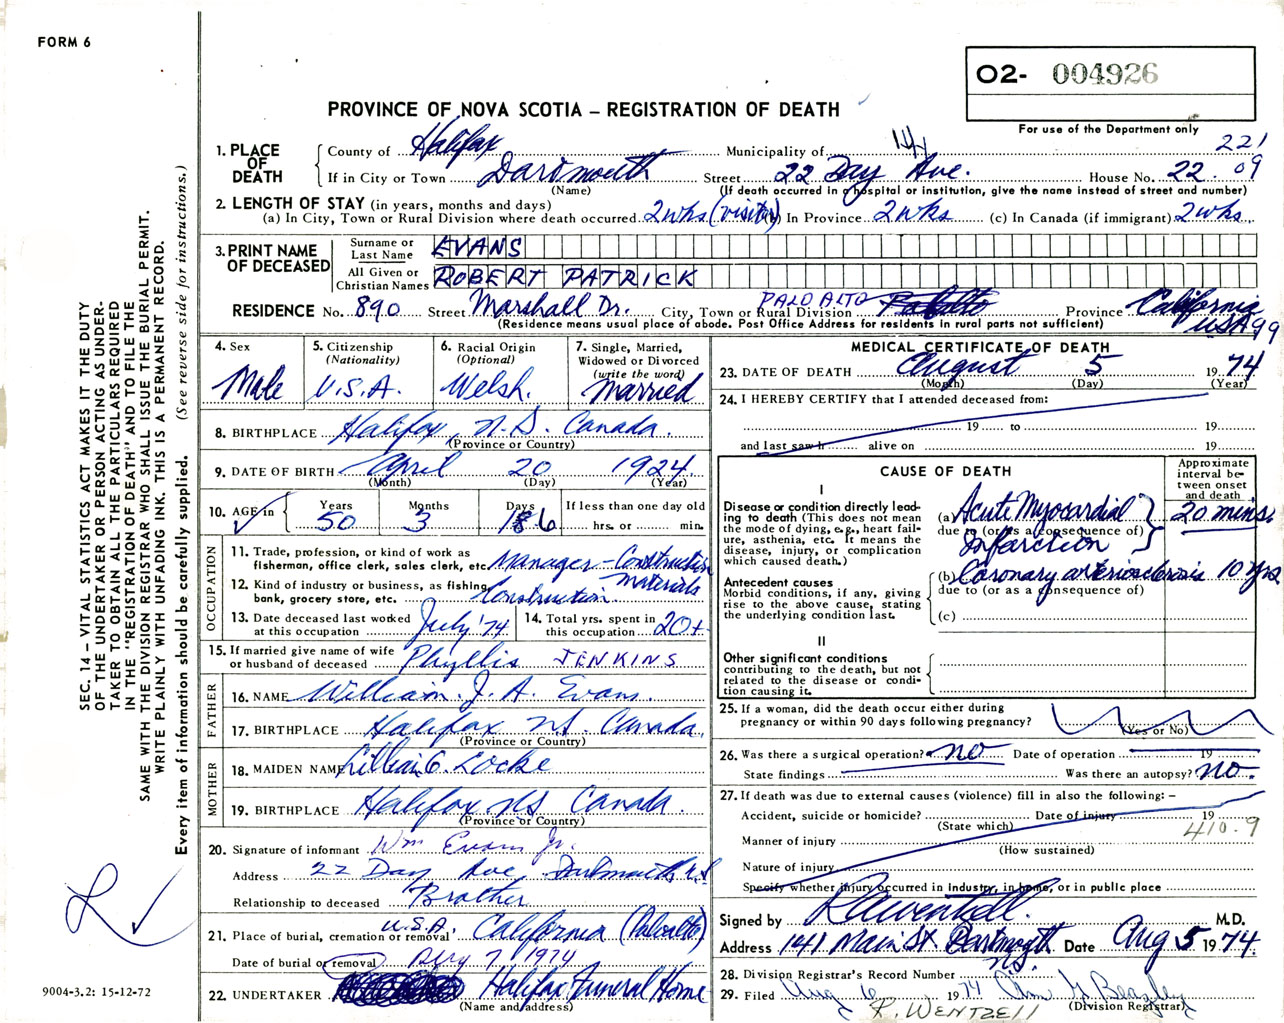 FORM 6
O2- 004926
For use of the Department only
PROVINCE OF NOVA SCOTIA – REGISTRATION OF DEATH
1. PLACE OF DEATH
County of Halifax Municipality of 144 221
If in City or Town Dartmouth Street 22 Day Ave. House No. 22 09
(Name) (If death occurred in a hospital or institution, give the name instead of street and number)
2. LENGTH OF STAY (in years, months and days)
(a) In City, Town or Rural Division where death occurred 2 wks (visitor) (b) In Province 2 wks (c) In Canada (if immigrant) 2 wks.
3. PRINT NAME OF DECEASED
Surname or Last Name EVANS
All Given or Christian Names ROBERT PATRICK
RESIDENCE No. 890 Street Marshall Dr. City, Town or Rural Division PALO ALTO Province California USA 99
(Residence means usual place of abode. Post Office Address for residents in rural parts not sufficient)
4. Sex
Male
5. Citizenship
(Nationality)
U.S.A.
6. Racial Origin
(Optional)
Welsh.
7. Single, Married,
Widowed or Divorced
(write the word)
Married
8. BIRTHPLACE Halifax, N.S. Canada.
(Province or Country)
9. DATE OF BIRTH April 20 1924
(Month) (Day) (Year)
10. AGE in
Years Months Days If less than one day old
50 3 16 hrs. or min.
OCCUPATION
11. Trade, profession, or kind of work as
fisherman, office clerk, sales clerk, etc. Manager – Construction
Materials
12. Kind of industry or business, as fishing,
bank, grocery store, etc. Construction
13. Date deceased last worked
at this occupation July '74
14. Total yrs. spent in
this occupation 20+
15. If married give name of wife
or husband of deceased Phyllis JENKINS
FATHER
16. NAME William J. A. Evans.
17. BIRTHPLACE Halifax NS. Canada.
(Province or Country)
MOTHER
18. MAIDEN NAME Lillian C. Locke
19. BIRTHPLACE Halifax NS Canada.
(Province or Country)
20. Signature of informant Wm Evans Jr.
Address 22 Day Ave Dartmouth N.S
Relationship to deceased Brother
21. Place of burial, cremation or removal U.S.A. California (Palo alto)
Date of burial or removal Aug 7 1974
22. UNDERTAKER Halifax Funeral Home
(Name and address)
MEDICAL CERTIFICATE OF DEATH
23. DATE OF DEATH August 5 1974
(Month) (Day) (Year)
24. I HEREBY CERTIFY that I attended deceased from:
19 to 19
and last saw h alive on 19
CAUSE OF DEATH
Approximate interval between onset and death
I
Disease or condition directly leading to death (This does not mean the mode of dying, e.g., heart failure, asthenia, etc. It means the disease, injury, or complication which caused death.)
(a) Acute Myocardial 20 mins
due to (or as a consequence of)
Infarction
Antecedent causes
Morbid conditions, if any, giving rise to the above cause, stating the underlying condition last.
(b) Coronary arteriosclerosis 10 yrs
due to (or as a consequence of)
(c)
II
Other significant conditions
contributing to the death, but not related to the disease or condition causing it.
25. If a woman, did the death occur either during
pregnancy or within 90 days following pregnancy?
(Yes or No)
26. Was there a surgical operation? no Date of operation 19
State findings Was there an autopsy? no.
27. If death was due to external causes (violence) fill in also the following: –
Accident, suicide or homicide? Date of injury 19
(State which) 410.9
Manner of injury
(How sustained)
Nature of injury
Specify whether injury occurred in Industry, in home, or in public place
Signed by R Wentzell. M.D.
Address 141 Main St Dartmouth N.S. Date Aug 5 1974.
28. Division Registrar's Record Number
29. Filed Aug 6 1974
(Division Registrar)
R. WENTZELL
SEC. 14 – VITAL STATISTICS ACT MAKES IT THE DUTY
OF THE UNDERTAKER OR PERSON ACTING AS UNDER-
TAKER TO OBTAIN ALL THE PARTICULARS REQUIRED
IN THE "REGISTRATION OF DEATH" AND TO FILE THE
SAME WITH THE DIVISION REGISTRAR WHO SHALL ISSUE THE BURIAL PERMIT.
WRITE PLAINLY WITH UNFADING INK. THIS IS A PERMANENT RECORD.
Every item of information should be carefully supplied. (See reverse side for instructions.)
9004-3.2: 15-12-72